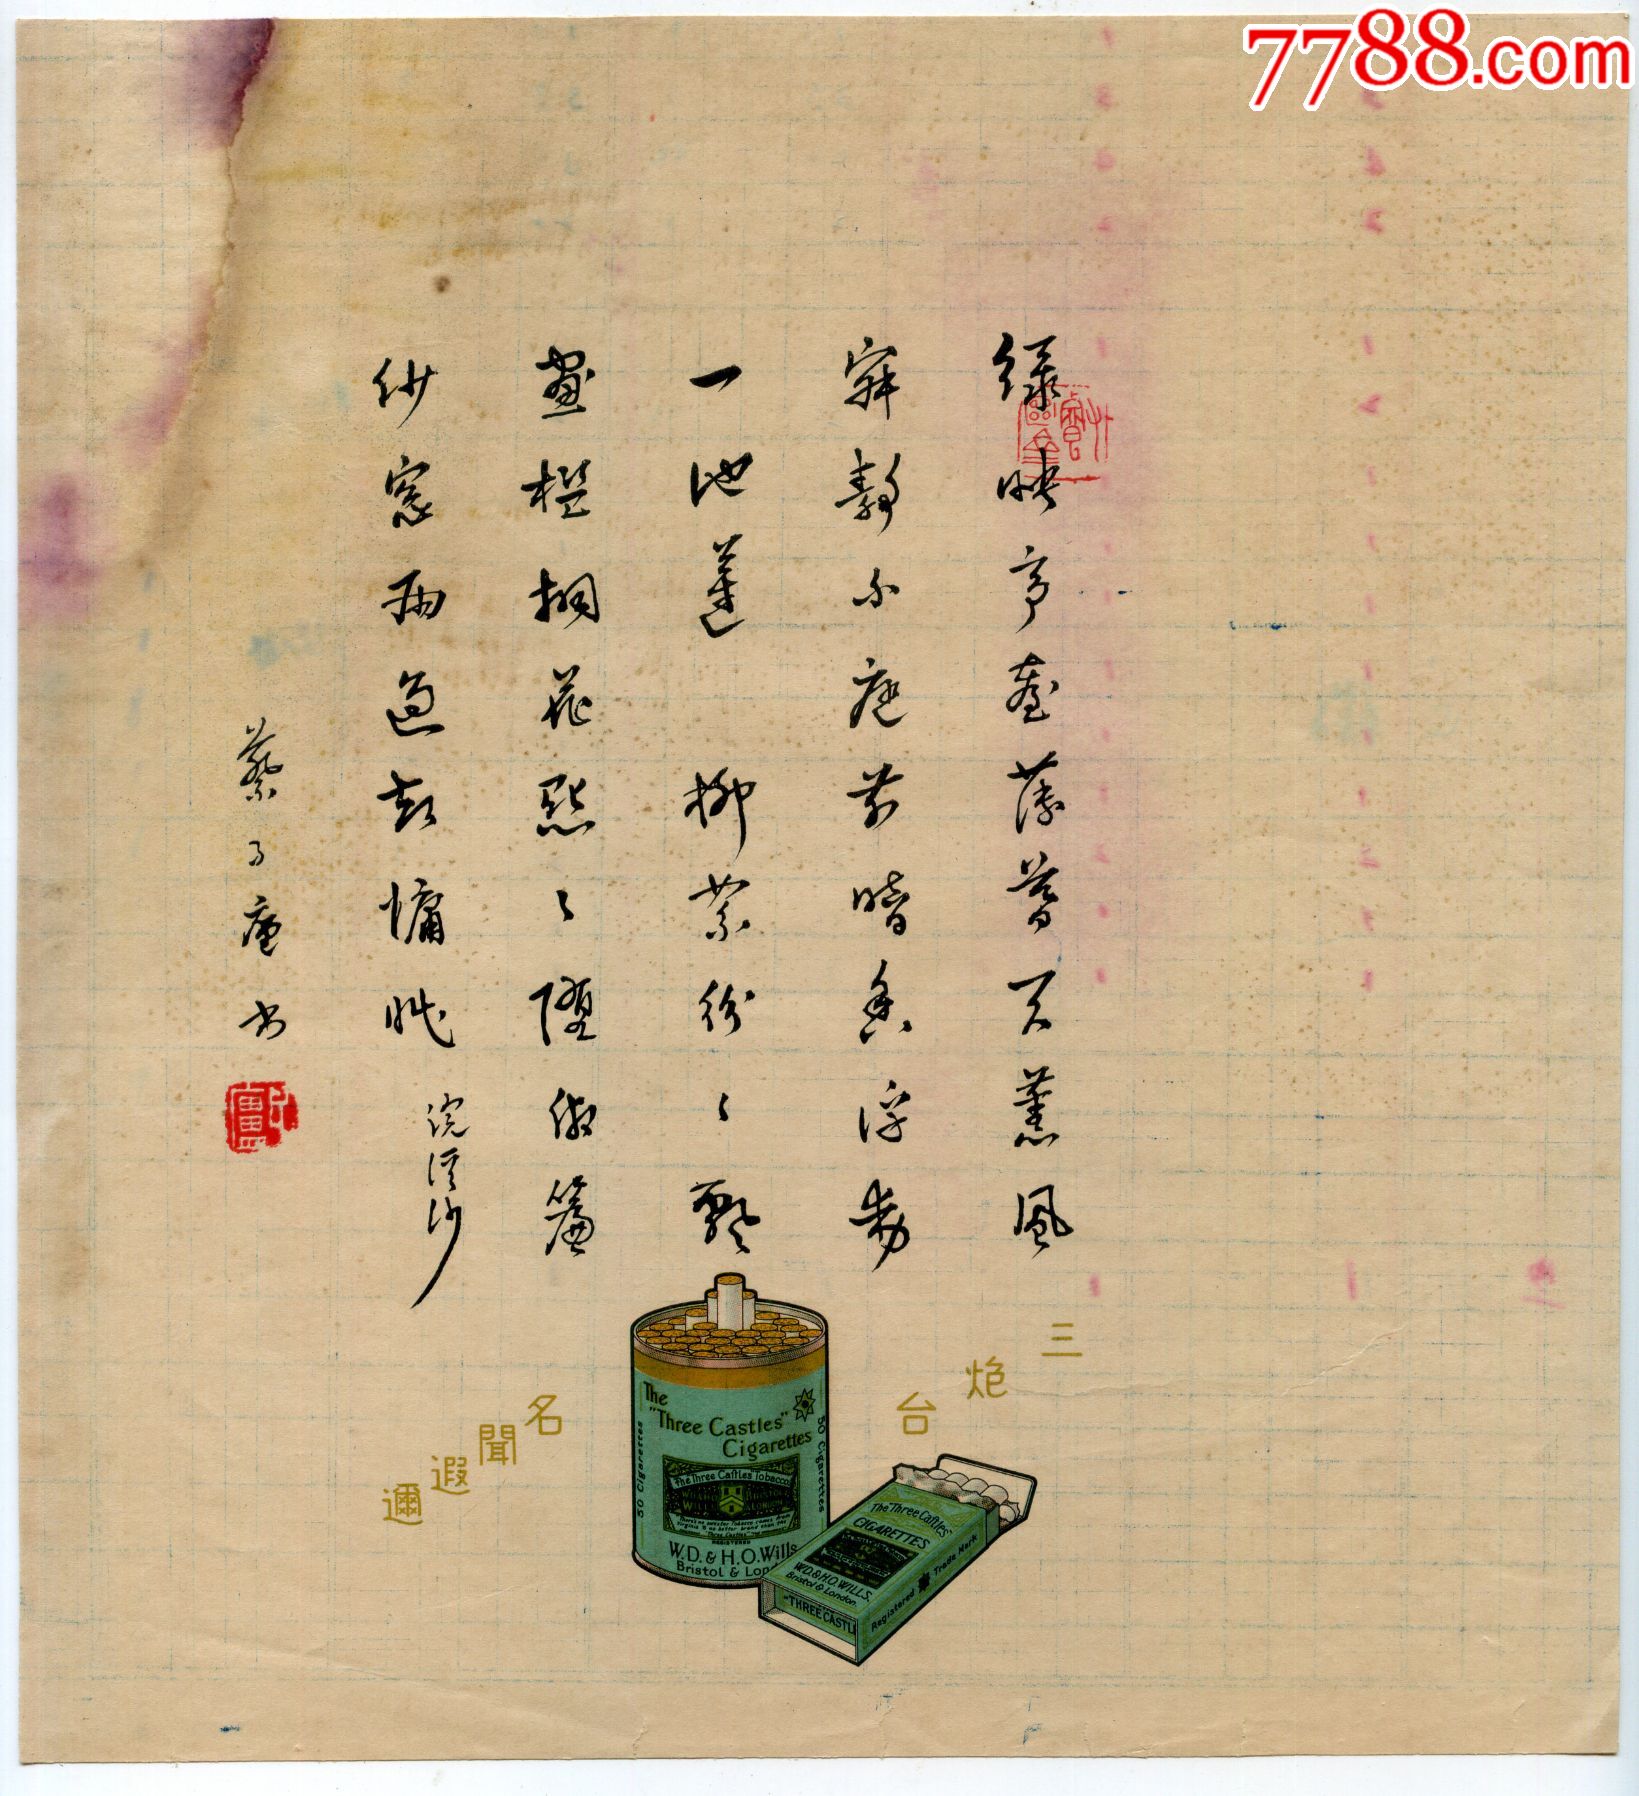 7788.com
綠映亭臺薄暮天薰風
寂靜小庭前暗香浮動
一池蓮 柳絮紛々飄
畫檻桐花點々墮緗簾
紗窗雨過起慵眠 浣溪沙
蔡了庵书
三炮台
名聞遐邇
The
"Three Castles"
Cigarettes
50 Cigarettes
50 Cigarettes
The Three Castles Tobacco
W.D. & H.O. Wills
Bristol & Lon
The "Three Castles"
CIGARETTES
W.D. & H.O. WILLS.
Bristol & London.
"THREE CASTL
Registered Trade Mark